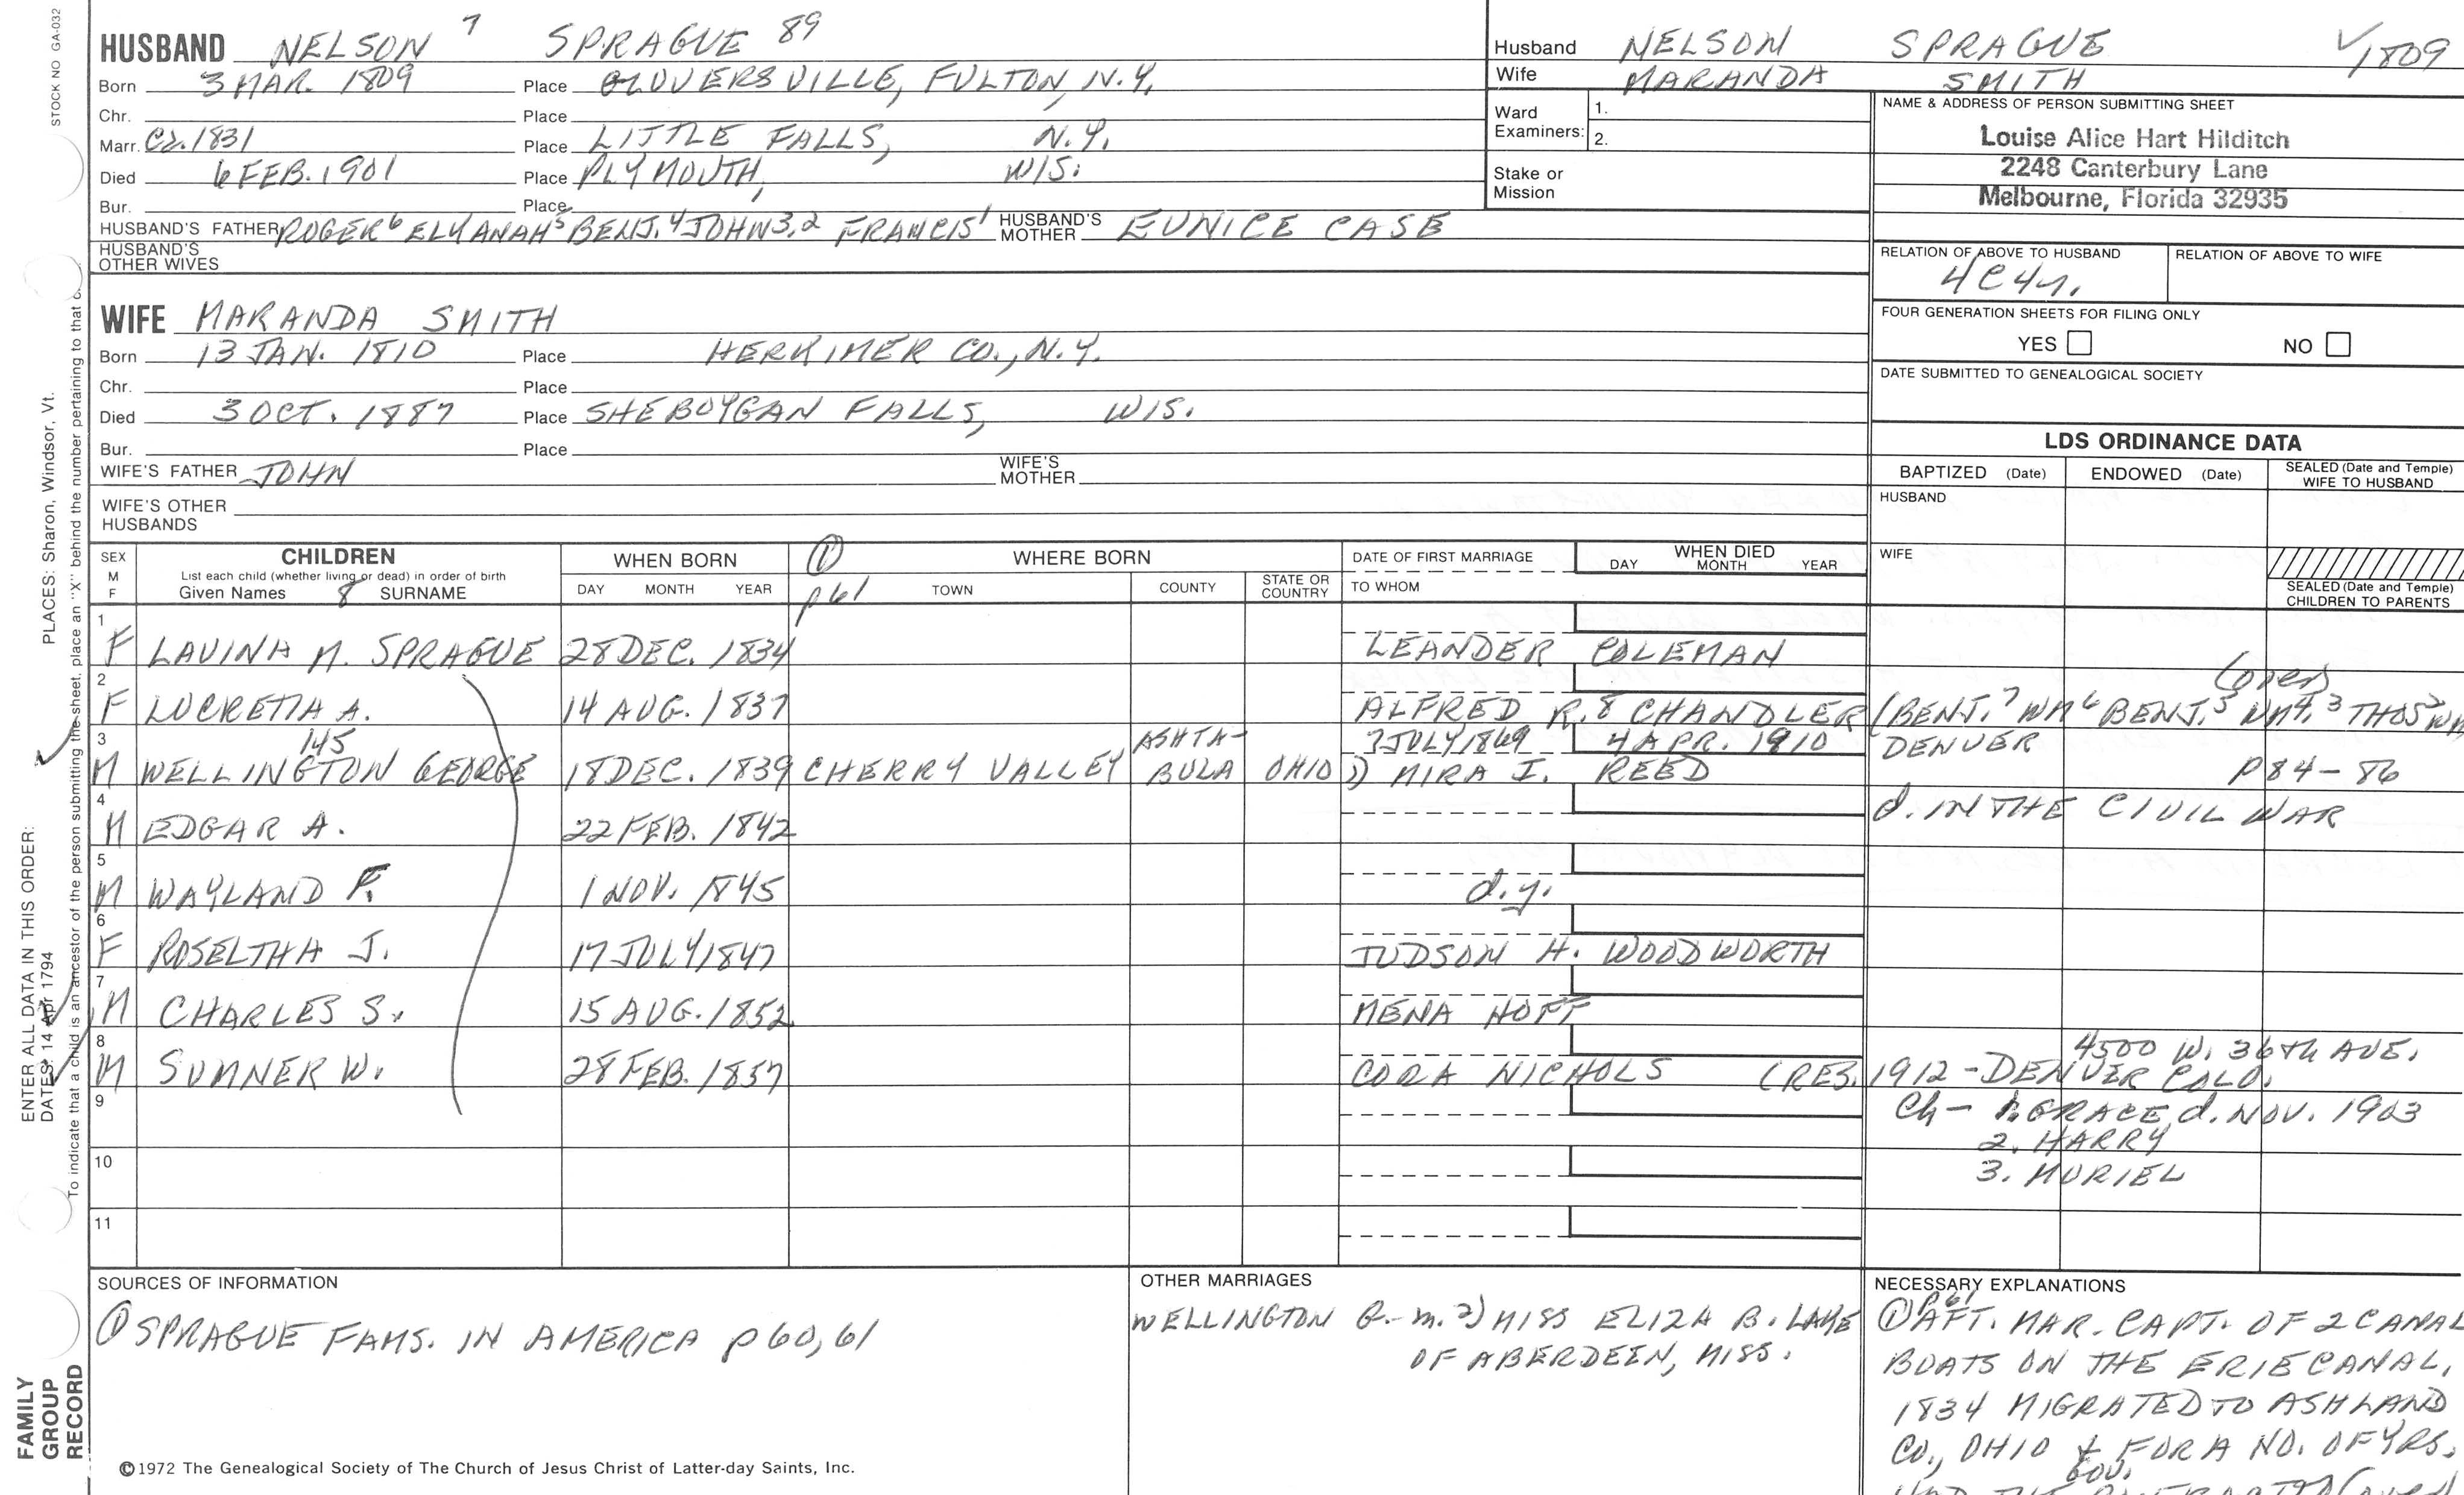 STOCK NO GA-032
HUSBAND NELSON 7 SPRAGUE 89
Born 3 MAR. 1809 Place GLOVERSVILLE, FULTON, N.Y.
Chr. Place
Marr. Ca. 1831 Place LITTLE FALLS, N.Y.
Died 6 FEB. 1901 Place PLYMOUTH, WIS.
Bur. Place
HUSBAND'S FATHER ROGER 6 ELYANAH 5 BENJ. 4 JOHN 3,2 FRANCIS 1 HUSBAND'S MOTHER EUNICE CASE
HUSBAND'S OTHER WIVES
Husband NELSON SPRAGUE 1809
Wife MARANDA SMITH
Ward Examiners: 1.
2.
Stake or Mission
NAME & ADDRESS OF PERSON SUBMITTING SHEET
Louise Alice Hart Hilditch
2248 Canterbury Lane
Melbourne, Florida 32935
RELATION OF ABOVE TO HUSBAND RELATION OF ABOVE TO WIFE
4C4r.
FOUR GENERATION SHEETS FOR FILING ONLY
YES NO
DATE SUBMITTED TO GENEALOGICAL SOCIETY
WIFE MARANDA SMITH
Born 13 JAN. 1810 Place HERKIMER CO., N.Y.
Chr. Place
Died 3 OCT. 1887 Place SHEBOYGAN FALLS, WIS.
Bur. Place
WIFE'S FATHER JOHN WIFE'S MOTHER
WIFE'S OTHER HUSBANDS
LDS ORDINANCE DATA
BAPTIZED (Date) ENDOWED (Date) SEALED (Date and Temple) WIFE TO HUSBAND
HUSBAND
WIFE
SEALED (Date and Temple) CHILDREN TO PARENTS
SEX M F
CHILDREN
List each child (whether living or dead) in order of birth
Given Names 8 SURNAME
WHEN BORN
DAY MONTH YEAR
① p 61
WHERE BORN
TOWN COUNTY STATE OR COUNTRY
DATE OF FIRST MARRIAGE
TO WHOM
WHEN DIED
DAY MONTH YEAR
1 F LAVINA M. SPRAGUE 28 DEC. 1834 LEANDER COLEMAN
(over)
2 F LUCRETIA A. 14 AUG. 1837 ALFRED R. 8 CHANDLER (BENJ. 7 WM 6 BENJ. 5 NM 4, 3 THOS 2 WM
145
3 M WELLINGTON GEORGE 18 DEC. 1839 CHERRY VALLEY ASHTABULA OHIO 7 JULY 1869 4 APR. 1910 DENVER
1) MIRA I. REED p 84-86
4 M EDGAR A. 22 FEB. 1842 d. IN THE CIVIL WAR
5 M WAYLAND F. 1 NOV. 1845 d.y.
6 F ROSELTHA J. 17 JULY 1847 JUDSON H. WOODWORTH
7 M CHARLES S. 15 AUG. 1852 MENA HOFF
8 M SUMNER W. 28 FEB. 1857 CORA NICHOLS (RES. 1912 - DENVER COLO.
4500 W. 36th AVE.
9 Ch - 1. GRACE, d. NOV. 1903
2. HARRY
10 3. MURIEL
11
SOURCES OF INFORMATION
① SPRAGUE FAMS. IN AMERICA p 60, 61
OTHER MARRIAGES
WELLINGTON G. - m. 2) MISS ELIZA B. LAKE
OF ABERDEEN, MISS.
NECESSARY EXPLANATIONS
① p 61 AFT. MAR. CAPT. OF 2 CANAL
BOATS ON THE ERIE CANAL,
1834 MIGRATED TO ASHLAND
CO., OHIO & FOR A NO. OF YRS.
©1972 The Genealogical Society of The Church of Jesus Christ of Latter-day Saints, Inc.
FAMILY GROUP RECORD
ENTER ALL DATA IN THIS ORDER:
DATES: 14 Apr 1794
PLACES: Sharon, Windsor, Vt.
To indicate that a child is an ancestor of the person submitting the sheet, place an "X" behind the number pertaining to that